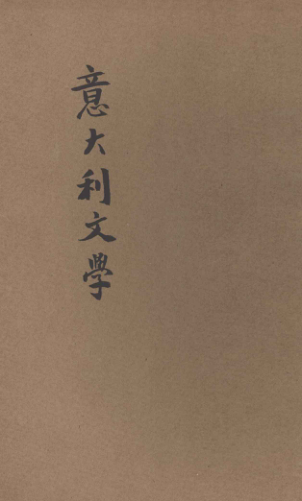 意大利文學